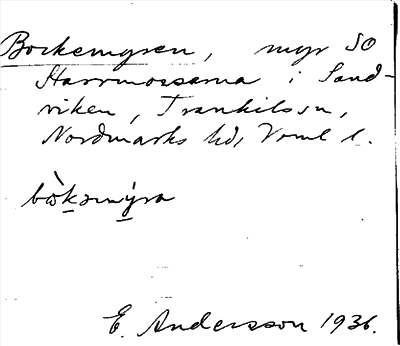 Bockemyren, myr SO
Harrmossarna i Sand-
viken, Trankilssn,
Nordmarks hd, Vrml l.
bòkəmýra
E. Andersson 1936.